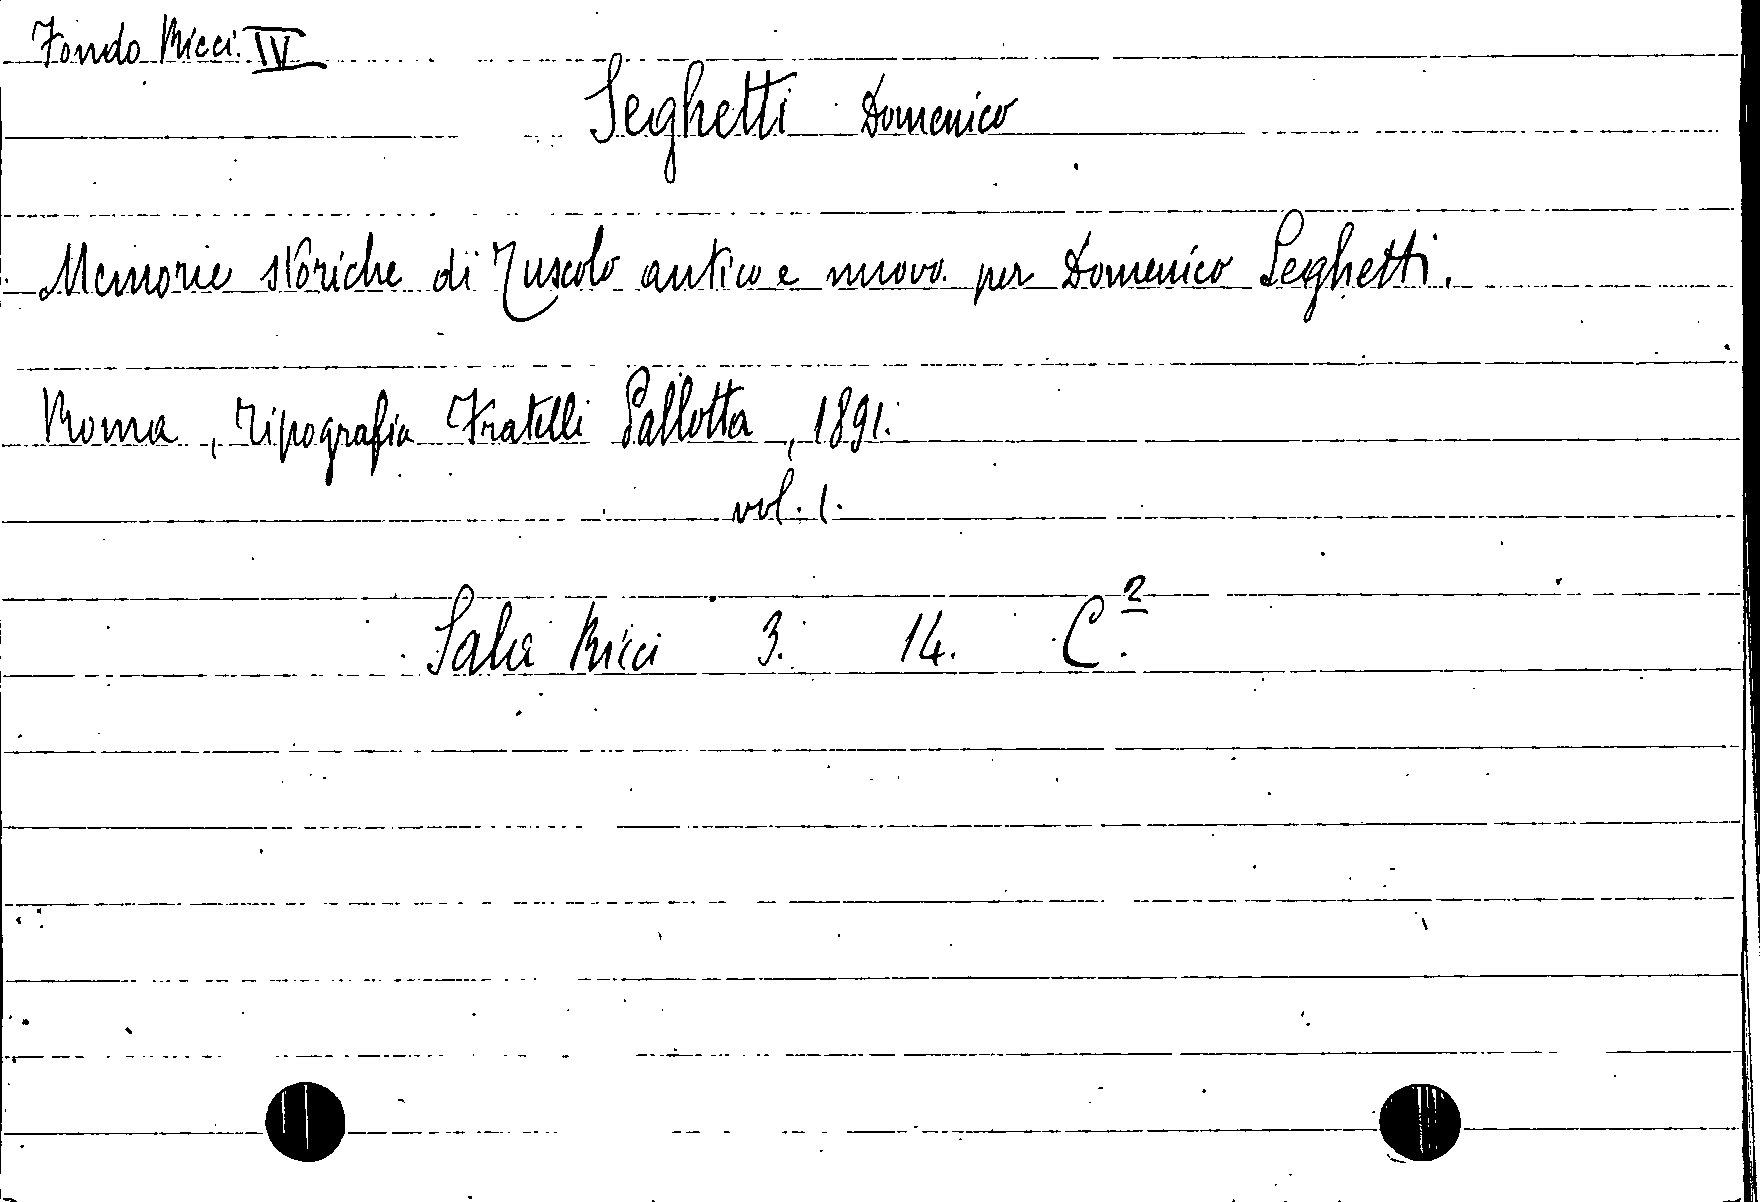 Fondo Ricci. IV
Seghetti Domenico
Memorie storiche di Tuscolo antico e nuovo per Domenico Seghetti.
Roma, Tipografia Fratelli Pallotta, 1891.
vol. 1.
Sala Ricci 3. 14. C².